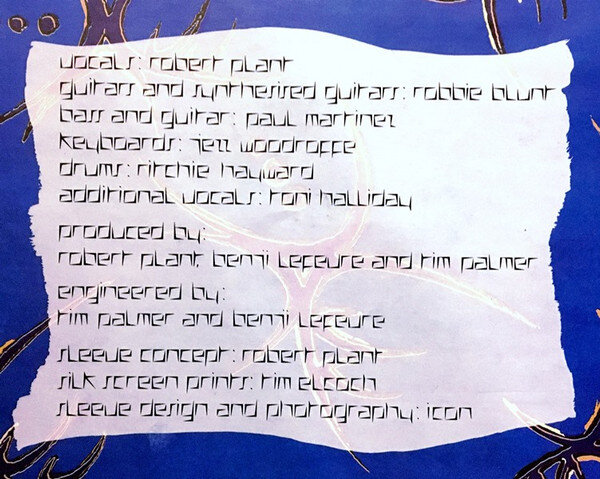 vocals: robert plant
guitars and synthesised guitars: robbie blunt
bass and guitar: paul martinez
keyboards: jezz woodroffe
drums: ritchie hayward
additional vocals: toni halliday
produced by:
robert plant, benji lefevre and tim palmer
engineered by:
tim palmer and benji lefevre
sleeve concept: robert plant
silk screen prints: tim elcoch
sleeve design and photography: icon